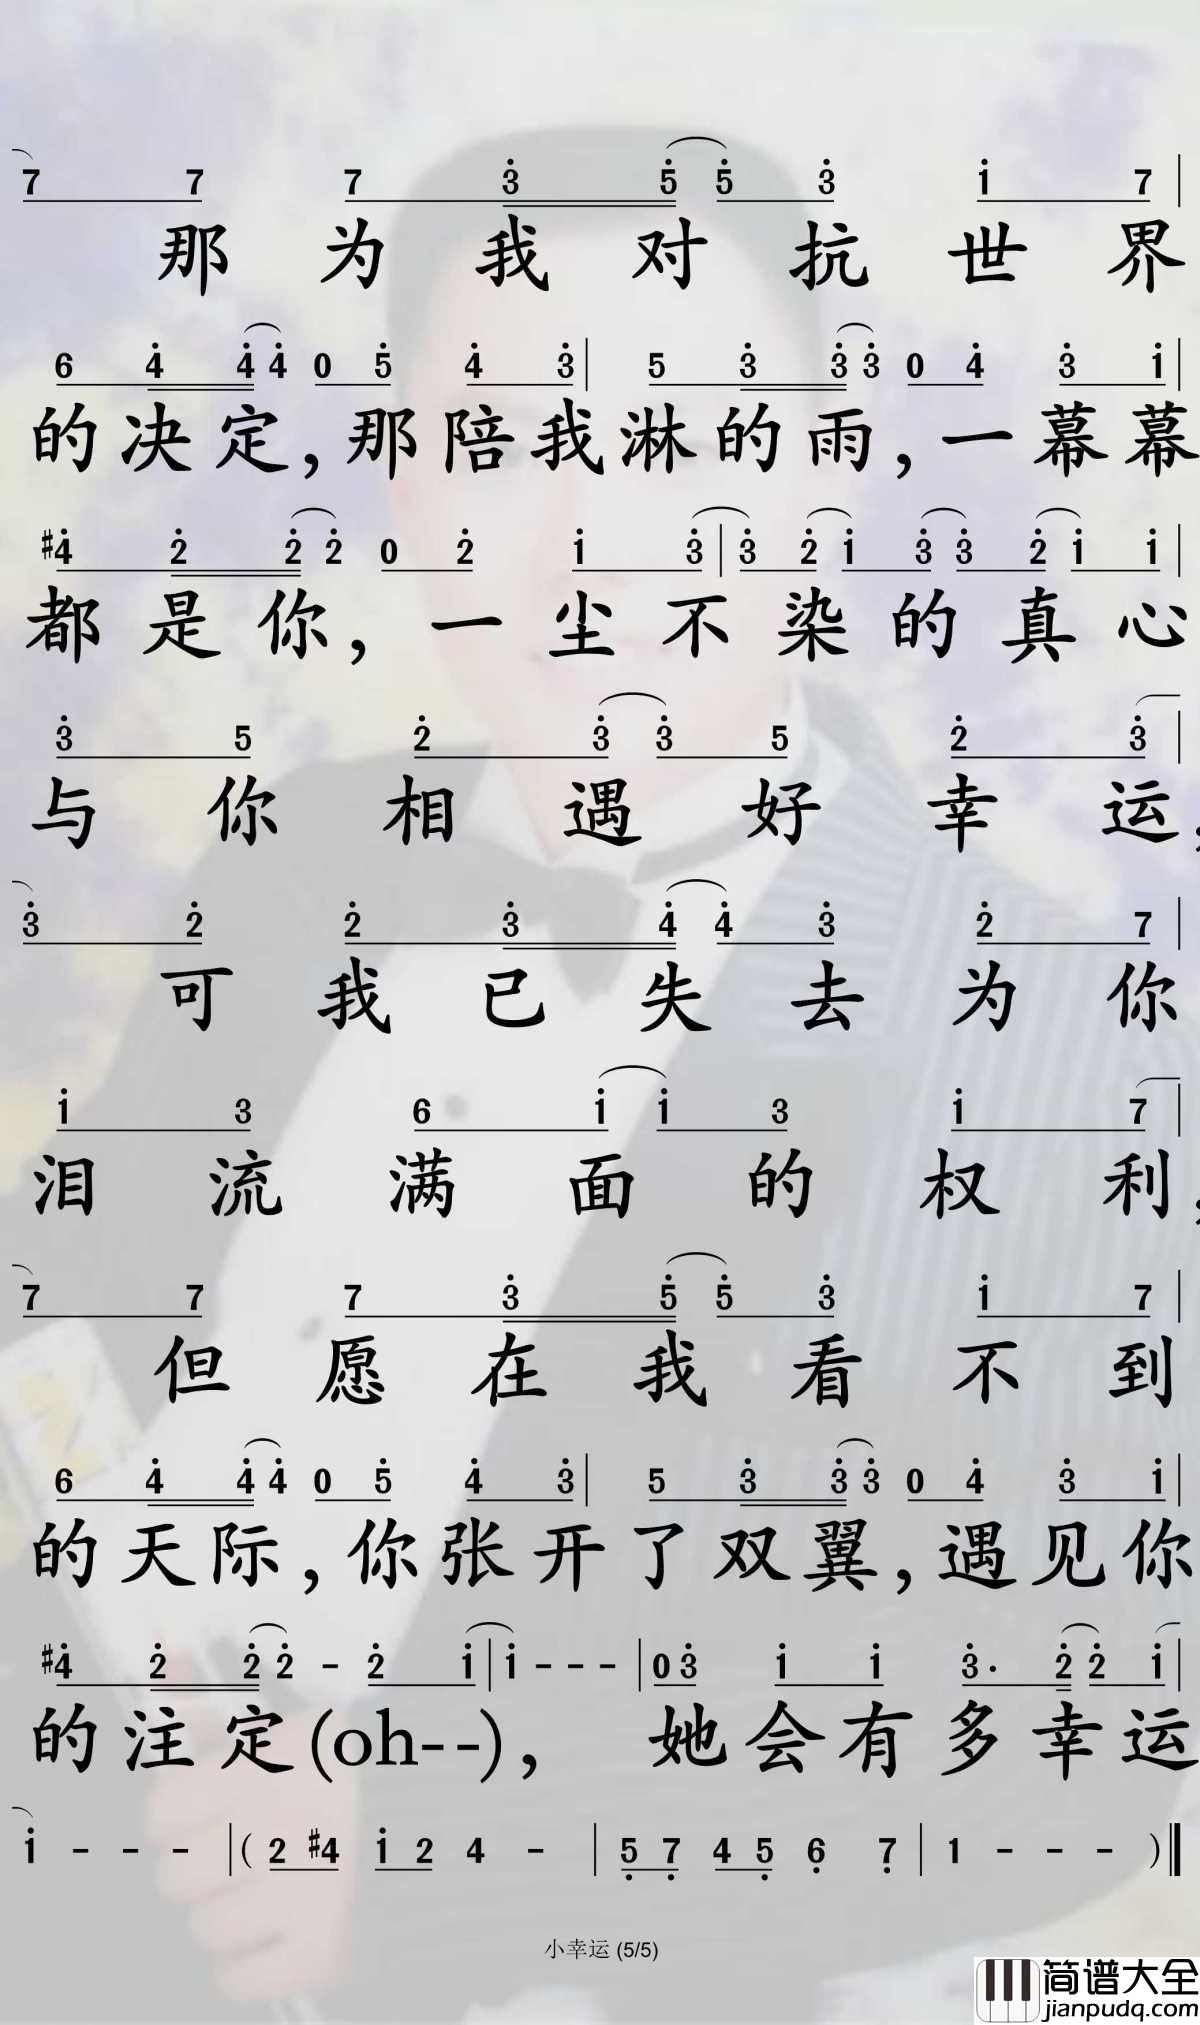 7 7 7 3 5 5 3 1 7
那为我对抗世界
6 4 4 4 0 5 4 3 | 5 3 3 3 0 4 3 1
的决定,那陪我淋的雨,一幕幕
#4 2 2 2 0 2 1 3 | 3 2 1 3 3 2 1 1
都是你,一尘不染的真心
3 5 2 3 3 5 2 3
与你相遇好幸运,
3 2 2 3 4 4 3 2 7
可我已失去为你
1 3 6 1 1 3 1 7
泪流满面的权利,
7 7 7 3 5 5 3 1 7
但愿在我看不到
6 4 4 4 0 5 4 3 | 5 3 3 3 0 4 3 1
的天际,你张开了双翼,遇见你
#4 2 2 2 - 2 1 | 1 - - - | 0 3 1 1 3· 2 2 1
的注定(oh--), 她会有多幸运
1 - - - | ( 2 #4 1 2 4 - | 5 7 4 5 6 7 | 1 - - - )
小幸运 (5/5)
简谱大全
jianpudq.com